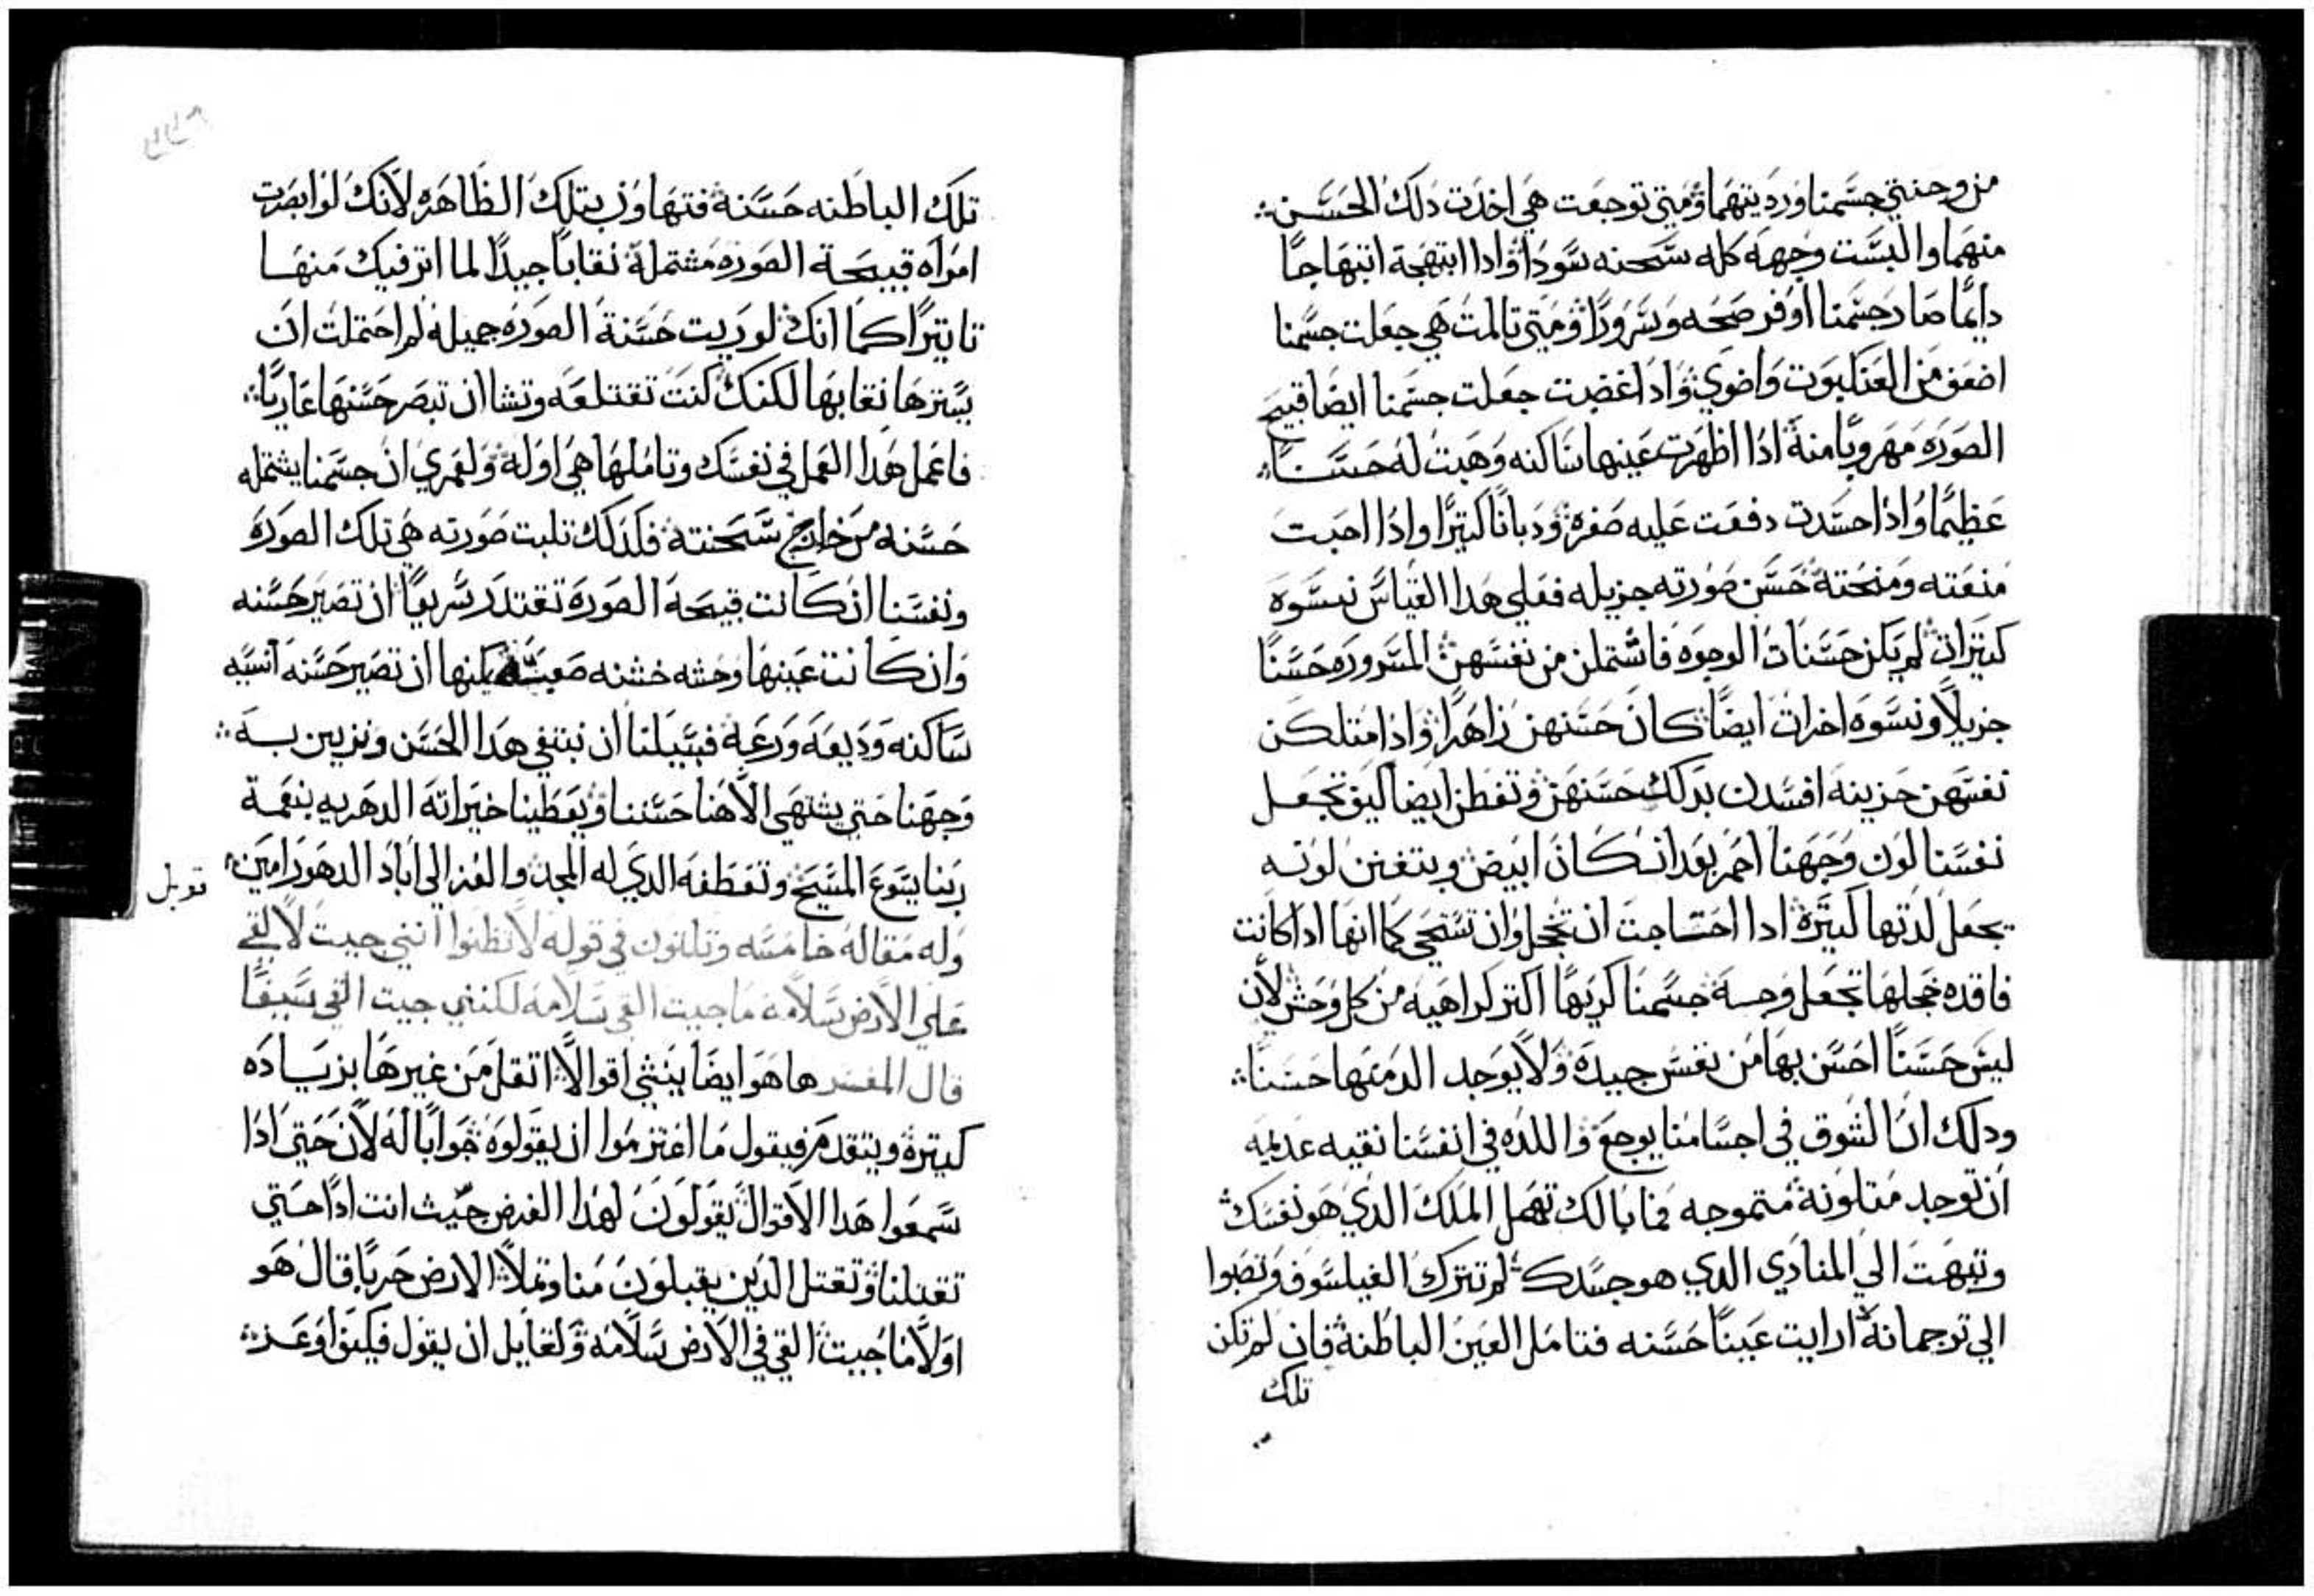 من وجنتي جسمنا ورديتهما ومتي توجعت هي اخدت دلك الحسن
منهما والبست وجهه كله سحنه سودا وادا ابتهجة ابتهاجا
دايما صار جسمنا اوفر صحه وسرورا ومتي تالمت هي جعلت جسمنا
اضعف من العنكبوت واضوي وادا غضبت جعلت جسمنا ايضا قبيح
الصوره مهروبا منه ادا اظهرت عينها ساكنه وهبت له حسنا
عظيما وادا حسدت دفعت عليه صفره ودبانا كتيرا وادا احبت
منعته ومنحته حسن صورته جزيله فعلي هدا القياس نسوة
كتيرات لم يكن حسنات الوجوه فاشتملن من نفسهن المسروره حسنا
جزيلا ونسوه اخرات ايضا كان حسنهن زاهرا وادا امتلكن
نفسهن حزينه افسدن بدلك حسنهن وتفطن ايضا كيف تجعل
نفسنا لون وجهنا احمر بعد ان كان ابيض وبتغنن لونه
يجعل لدتها كتيره ادا احتاجت ان تخجل وان تستحي كما انها ادا كانت
فاقده خجلها تجعل وحسة جسمنا كريها اكتر كراهيه من كل وحش لان
ليس حسنا احسن بها من نفس جيده ولا يوجد الد منها حسنا
ودلك ان الشوق في اجسامنا يوجع واللده في انفسنا نقيه عديمه
ان توجد متلونة متموجه فما بالك تهمل الملك الدي هو نفسك
وتبهت الي المنادي الدي هو جسدك لم تترك الفيلسوف وتصبوا
الي ترجمانه ارايت عينا حسنه فتامل العين الباطنة فان لم تكن
تلك
٢٢٩
تلك الباطنه حسنة فتهاون بتلك الظاهره لانك لو ابصرت
امراه قبيحة الصوره مشتملة نقابا جيدا لما اتر فيك منها
تاتيرا كما انك لو ريت حسنة الصوره جميله لم احتملت ان
يسترها نقابها لكنك كنت تقتلعه وتشا ان تبصر حسنها عاريا
فاعمل هدا العمل في نفسك وتاملها هي اوله ولعمري ان جسمنا يشتمله
حسنه من خارج سحنته فلدلك تلبت صورته هي تلك الصورة
ونفسنا ان كانت قبيحة الصورة تقتدر سريعا ان تصير حسنه
وان كانت عينها وحشه خشنه صعبة يمكنها ان تصير حسنه انسيه
ساكنه وديعه ورعة فسبيلنا ان نبتغي هدا الحسن ونزين به
وجهنا حتي يشتهي الاهنا حسننا ويعطينا خيراته الدهريه بنعمة
ربنا يسوع المسيح وتعطفه الدي له المجد والعز الي اباد الدهور امين
قوبل
وله مقاله خامسه وتلتون في قوله لا تظنوا انني جيت لالقي
علي الارض سلامة ما جيت القي سلامه لكنني جيت القي سيفا
قال المفسر ها هو ايضا ينشي اقوالا اتقل من غيرها بزياده
كتيرة ويتقدم فيقول ما اعتزموا ان يقولوه جوابا له لان حتي ادا
سمعوا هدا الاقوال يقولون لهدا الغرض جيت انت ادا حتي
تقتلنا وتقتل الدين يقبلون منا وتملا الارض حربا قال هو
اولا ما جيت القي في الارض سلامه ولقايل ان يقول فكيف اوعز